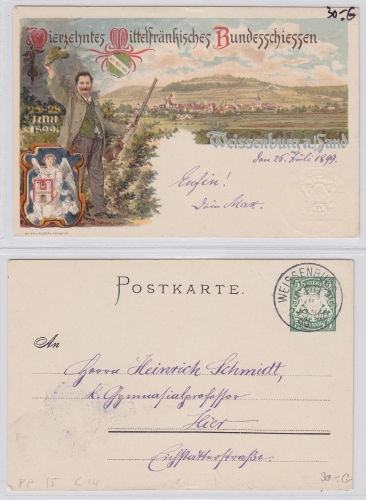 30.-G
Vierzehntes Mittelfränkisches Bundesschiessen
23-28
1899.
Weissenburg a./Sand
den 26. Juli 1899.
Enfin!
Dein Max.
POSTKARTE.
WEISSENBURG
An
Herrn Heinrich Schmidt,
k. Gymnasialprofessor
Hier
Eichstätterstraße.
PP 15 C 14
30.-G